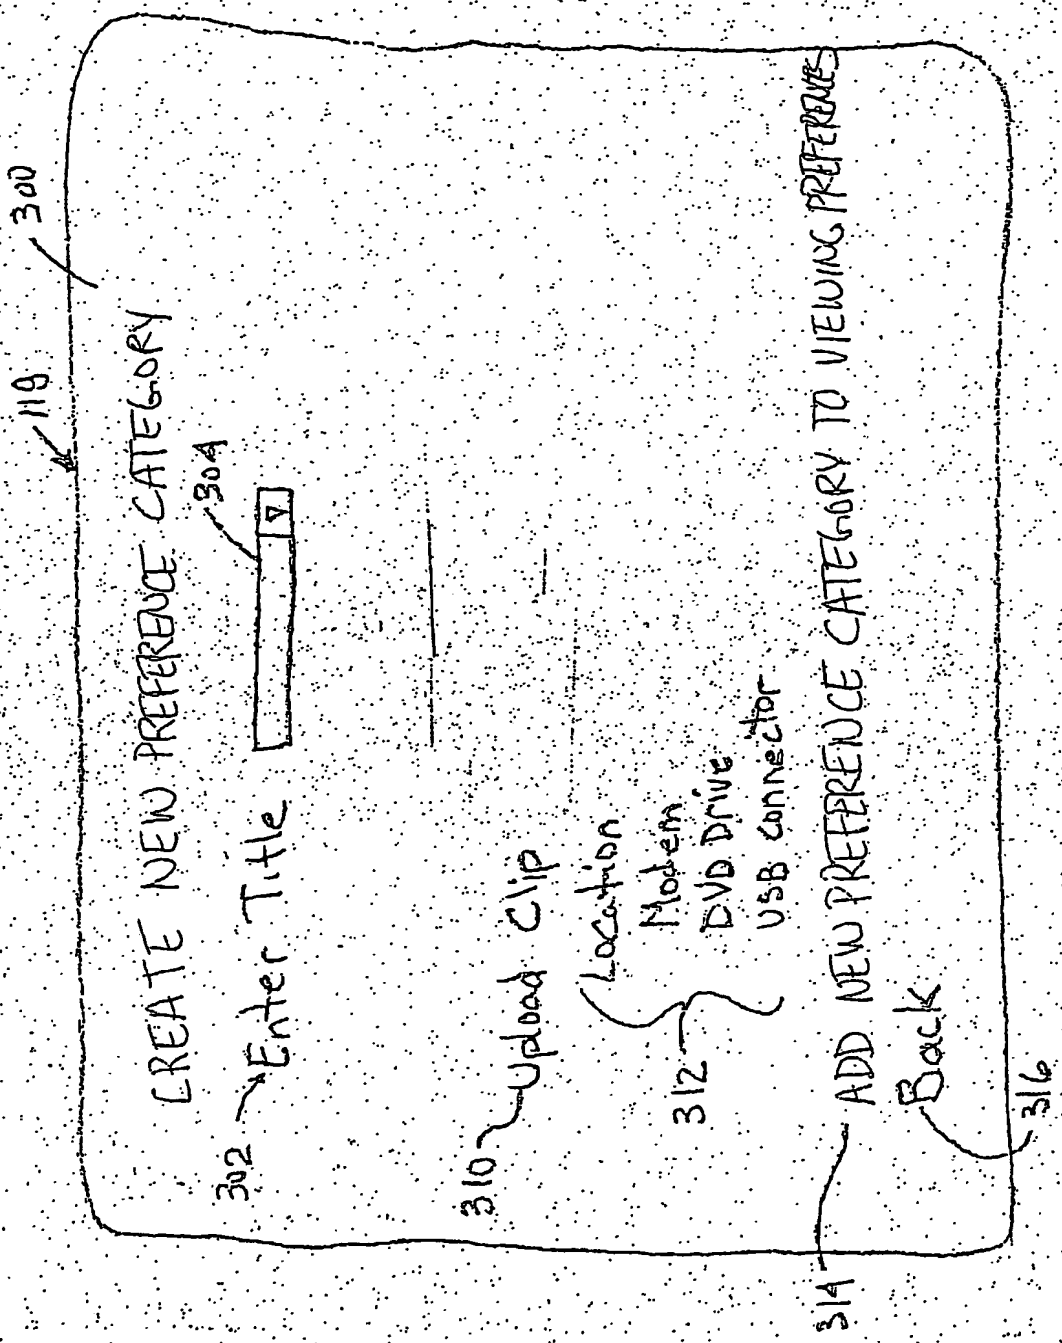 118
300
CREATE NEW PREFERENCE CATEGORY
302 Enter Title
304
310 Upload Clip
Location
Modem
312 DVD Drive
USB Connector
314 ADD NEW PREFERENCE CATEGORY TO VIEWING PREFERENCES
Back
316